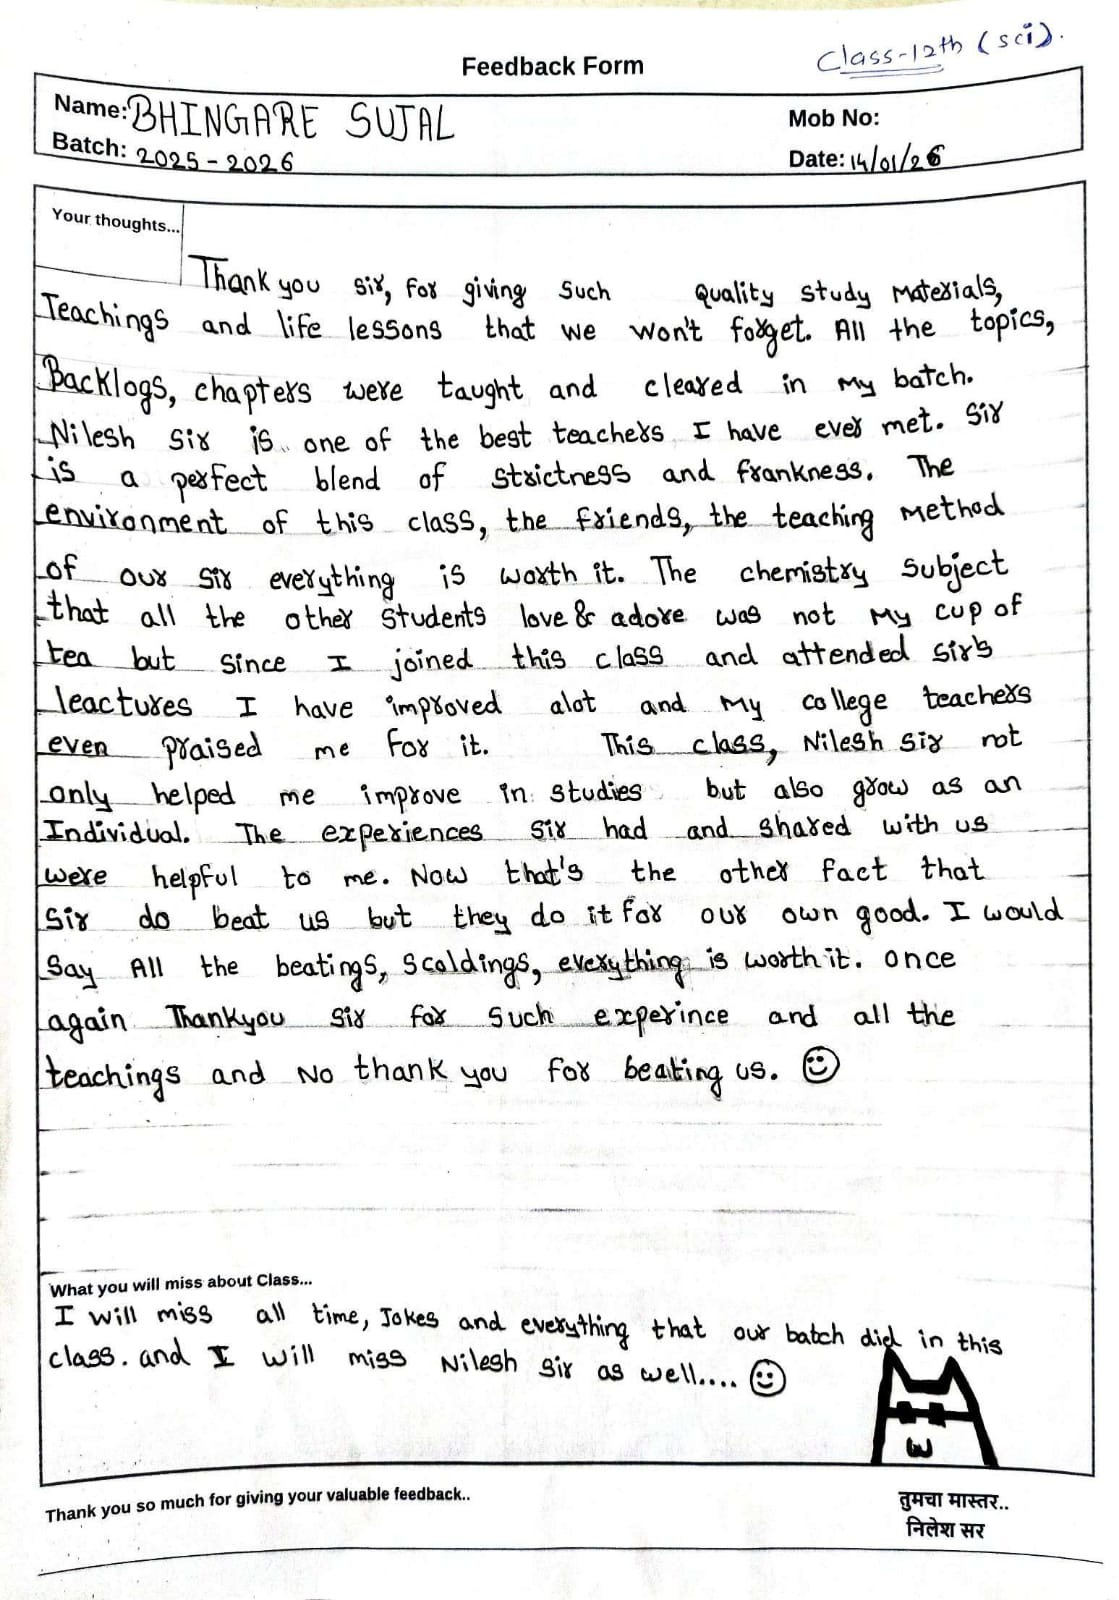 Class-12th (sci).
Feedback Form
Name: BHINGARE SUJAL
Mob No:
Batch: 2025-2026
Date: 14/01/26
Your thoughts...
Thank you sir, for giving such quality study materials,
Teachings and life lessons that we won't forget. All the topics,
Backlogs, chapters were taught and cleared in my batch.
Nilesh sir is one of the best teachers I have ever met. Sir
is a perfect blend of strictness and frankness. The
environment of this class, the friends, the teaching method
of our sir everything is worth it. The chemistry subject
that all the other students love & adore was not my cup of
tea but since I joined this class and attended sir's
leactures I have improved alot and my college teachers
even praised me for it. This class, Nilesh sir not
only helped me improve in studies but also grow as an
Individual. The experiences sir had and shared with us
were helpful to me. Now that's the other fact that
Sir do beat us but they do it for our own good. I would
Say All the beatings, scoldings, everything is worth it. once
again Thankyou sir for such experince and all the
teachings and No thank you for beating us. ☺
What you will miss about Class...
I will miss all time, Jokes and everything that our batch did in this
class. and I will miss Nilesh sir as well.... ☺
Thank you so much for giving your valuable feedback..
तुमचा मास्तर..
निलेश सर